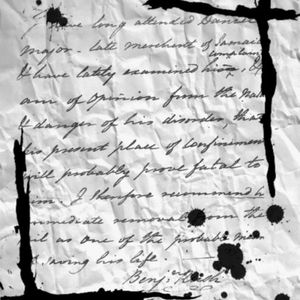 have long attended Daniel
major - late merchent of Jamaica
I have lately examined his complaint
am of Opinion from the
& danger of his disorder, that
his present place of Confinement
will probably prove fatal to
him. I therefore recommend h
immediate removal from the
as one of the probable mea
saving his life
Benjn